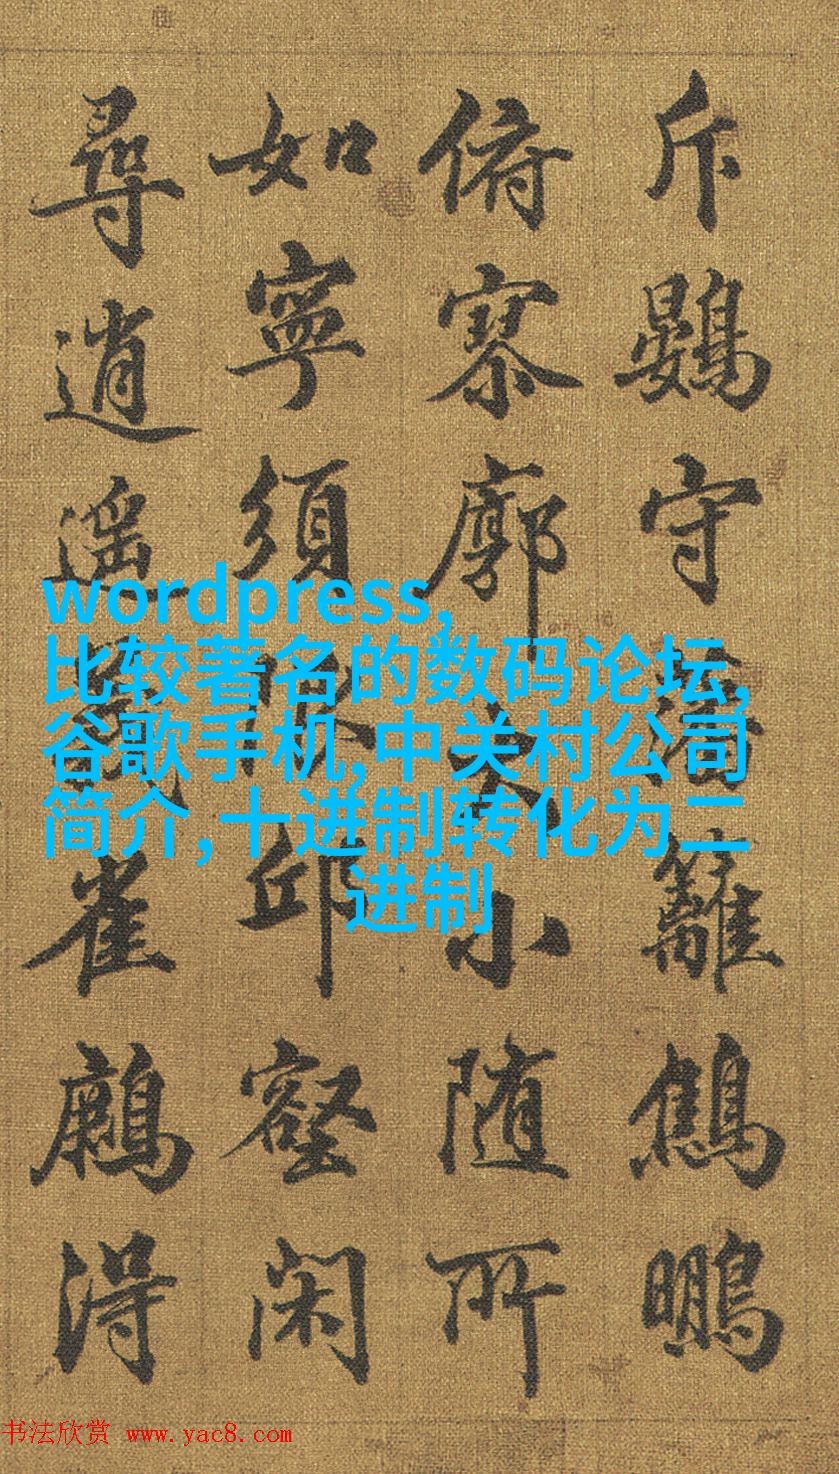 斥鷃守藩籬鵬
俯寥廓大小随所
如寧須邱壑閑
尋逍遥雀得
wordpress,
比较著名的数码论坛,
谷歌手机,中关村公司
简介,十进制转化为二
进制
书法欣赏 www.yac8.com